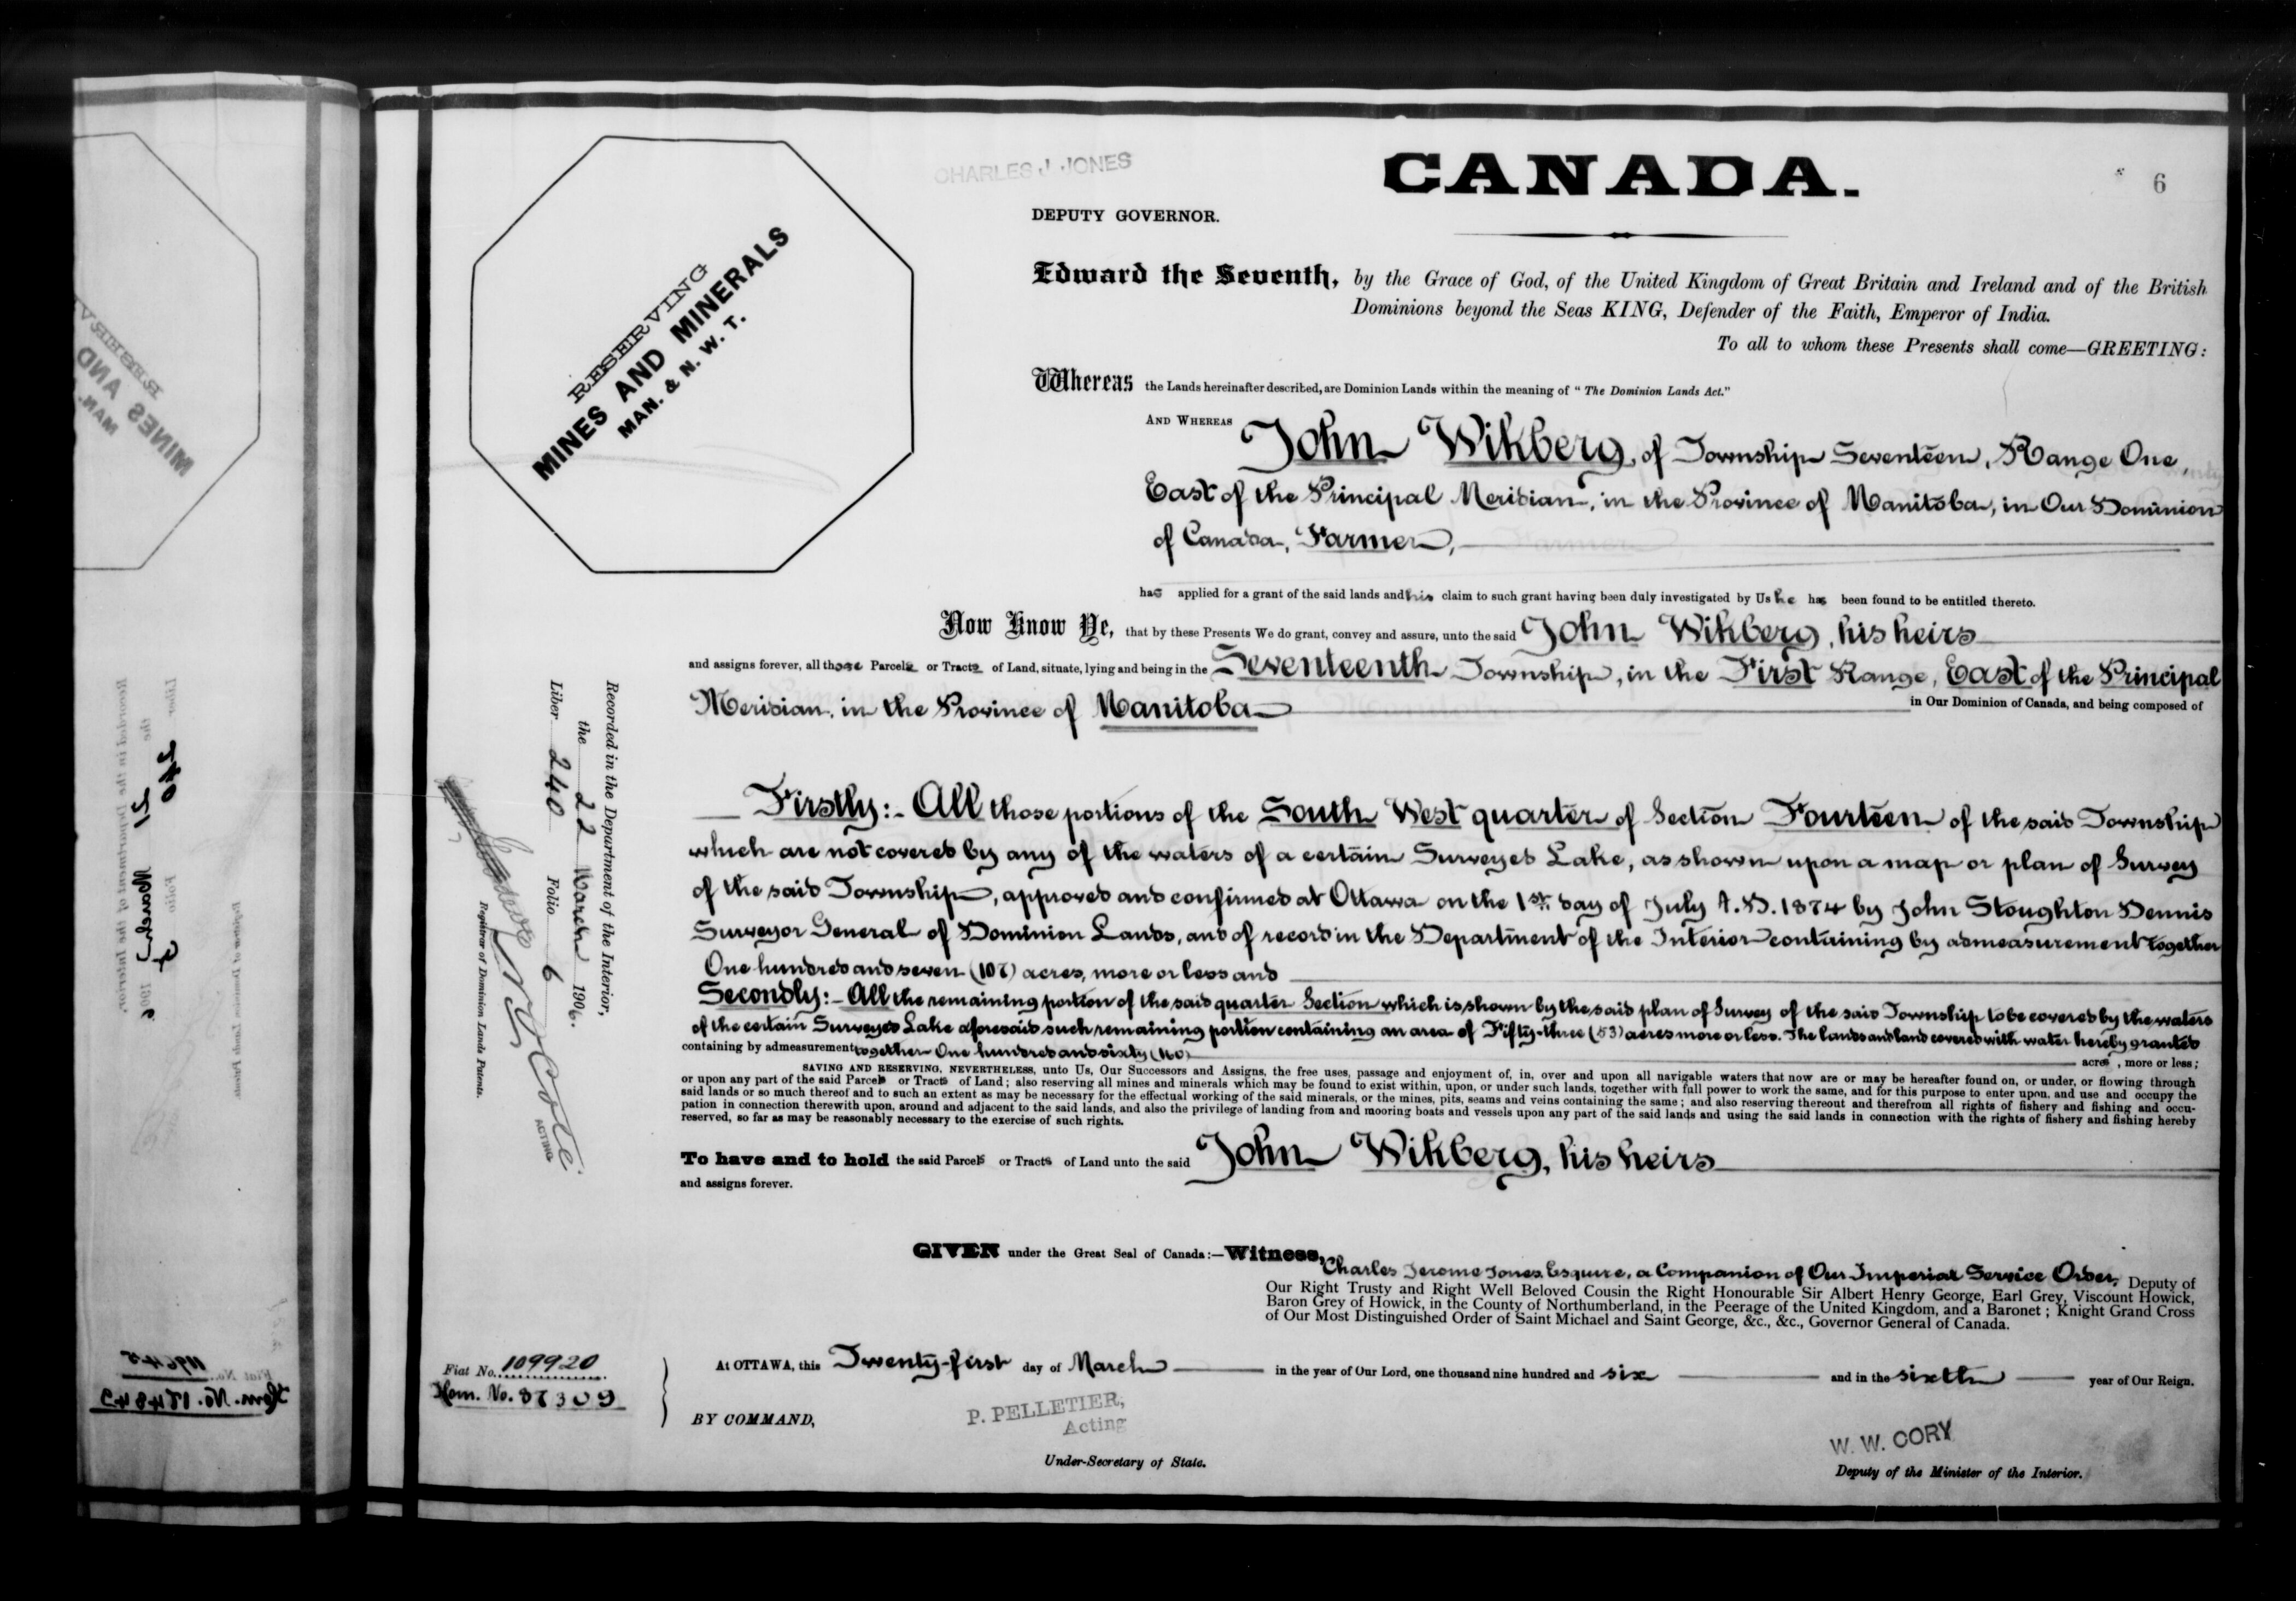 CHARLES J. JONES
CANADA.
6
DEPUTY GOVERNOR.
Edward the Seventh, by the Grace of God, of the United Kingdom of Great Britain and Ireland and of the British
Dominions beyond the Seas KING, Defender of the Faith, Emperor of India.
To all to whom these Presents shall come—GREETING:
RESERVING
MINES AND MINERALS
MAN. & N. W. T.
Whereas the Lands hereinafter described, are Dominion Lands within the meaning of "The Dominion Lands Act."
AND WHEREAS John Wikberg, of Township Seventeen, Range One,
East of the Principal Meridian, in the Province of Manitoba, in Our Dominion
of Canada, Farmer,
has applied for a grant of the said lands and his claim to such grant having been duly investigated by Us he has been found to be entitled thereto.
Now Know Ye, that by these Presents We do grant, convey and assure, unto the said John Wikberg, his heirs
and assigns forever, all those Parcels or Tracts of Land, situate, lying and being in the Seventeenth Township, in the First Range, East of the Principal
Meridian, in the Province of Manitoba in Our Dominion of Canada, and being composed of
Firstly:- All those portions of the South West quarter of Section Fourteen of the said Township
which are not covered by any of the waters of a certain Surveyed Lake, as shown upon a map or plan of Survey
of the said Township, approved and confirmed at Ottawa on the 1st. day of July A.D. 1874 by John Stoughton Dennis
Surveyor General of Dominion Lands, and of record in the Department of the Interior containing by admeasurement together
One hundred and seven (107) acres, more or less and
Secondly:- All the remaining portion of the said quarter Section which is shown by the said plan of Survey of the said Township to be covered by the waters
of the certain Surveyed Lake aforesaid such remaining portion containing an area of Fifty-three (53) acres more or less. The lands and land covered with water hereby granted
containing by admeasurement together One hundred and sixty (160) acres, more or less;
SAVING AND RESERVING, NEVERTHELESS, unto Us, Our Successors and Assigns, the free uses, passage and enjoyment of, in, over and upon all navigable waters that now are or may be hereafter found on, or under, or flowing through
or upon any part of the said Parcels or Tracts of Land; also reserving all mines and minerals which may be found to exist within, upon, or under such lands, together with full power to work the same, and for this purpose to enter upon, and use and occupy the
said lands or so much thereof and to such an extent as may be necessary for the effectual working of the said minerals, or the mines, pits, seams and veins containing the same; and also reserving thereout and therefrom all rights of fishery and fishing and occu-
pation in connection therewith upon, around and adjacent to the said lands, and also the privilege of landing from and mooring boats and vessels upon any part of the said lands and using the said lands in connection with the rights of fishery and fishing hereby
reserved, so far as may be reasonably necessary to the exercise of such rights.
To have and to hold the said Parcels or Tracts of Land unto the said John Wikberg, his heirs
and assigns forever.
Recorded in the Department of the Interior,
the 22 March 1906.
Liber 240 Folio 6
Registrar of Dominion Lands Patents.
ACTING
GIVEN under the Great Seal of Canada:—Witness, Charles Jerome Jones, Esquire, a Companion of Our Imperial Service Order, Deputy of
Our Right Trusty and Right Well Beloved Cousin the Right Honourable Sir Albert Henry George, Earl Grey, Viscount Howick,
Baron Grey of Howick, in the County of Northumberland, in the Peerage of the United Kingdom, and a Baronet; Knight Grand Cross
of Our Most Distinguished Order of Saint Michael and Saint George, &c., &c., Governor General of Canada.
Fiat No. 109920
Hom. No. 87309
At OTTAWA, this Twenty-first day of March in the year of Our Lord, one thousand nine hundred and six and in the sixth year of Our Reign.
BY COMMAND,
P. PELLETIER,
Acting
Under-Secretary of State.
W. W. CORY
Deputy of the Minister of the Interior.